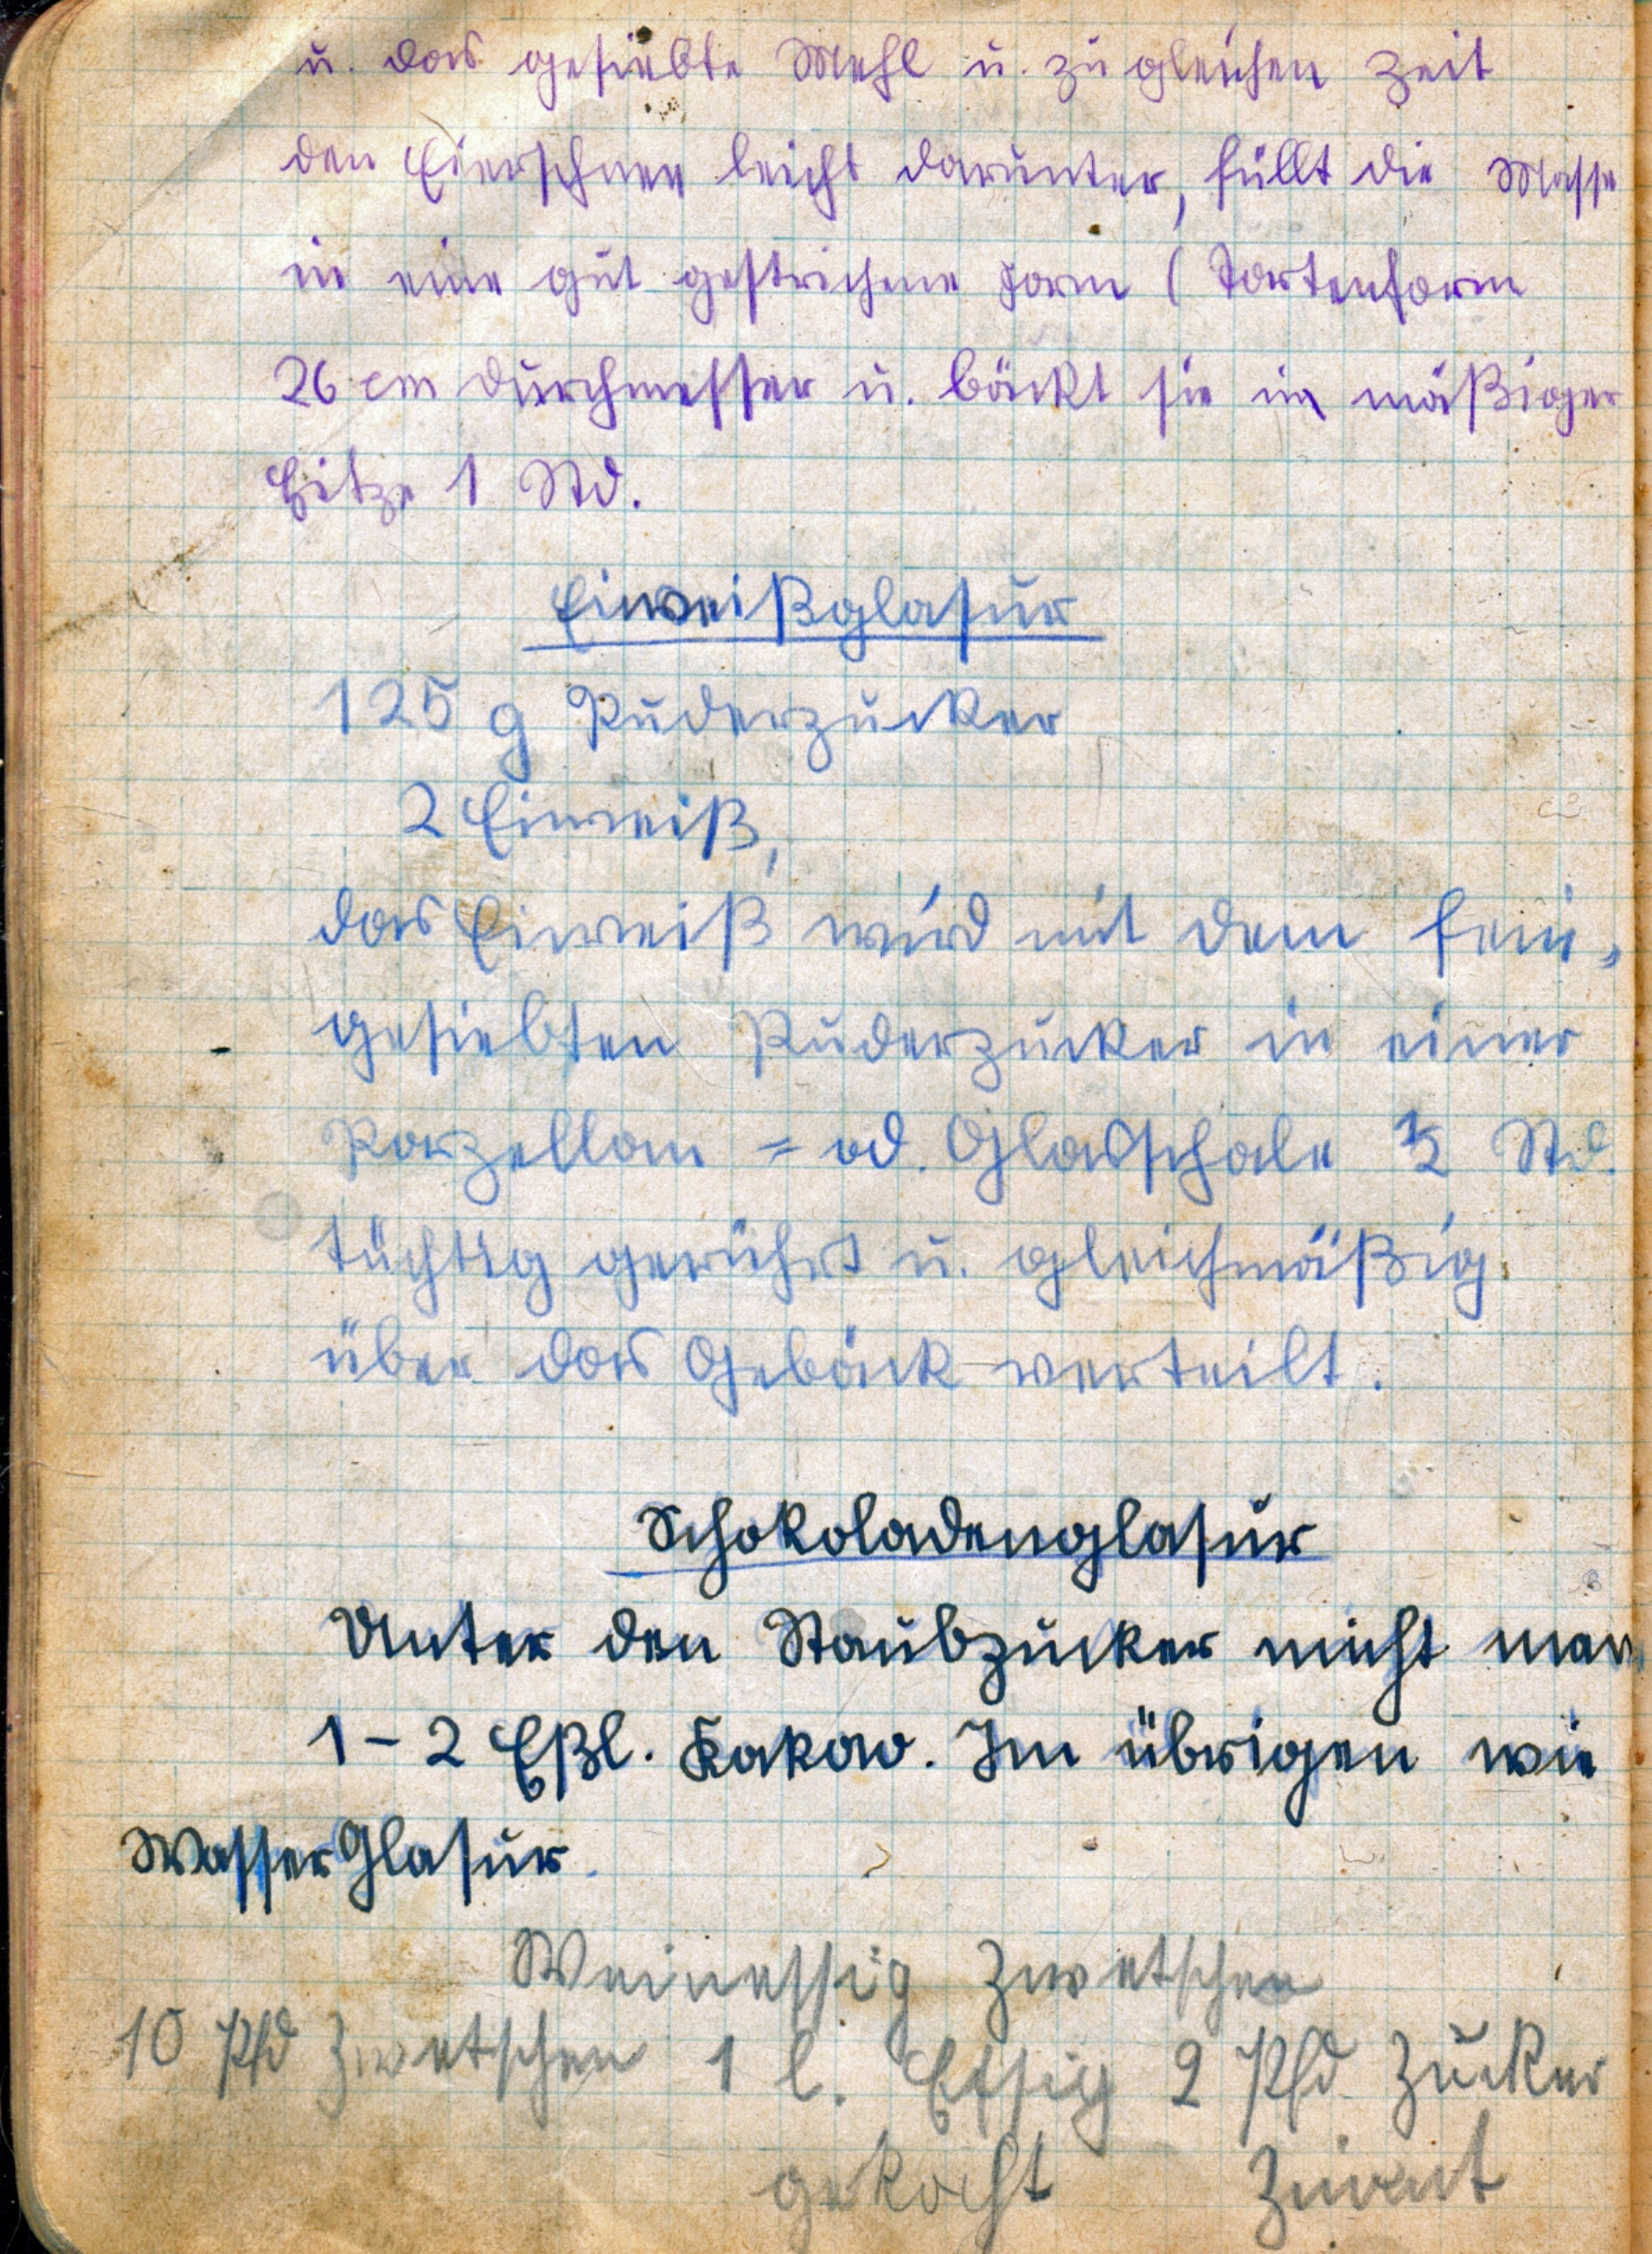 u. das gesiebte Mehl u. zu gleichen Zeit
den Eierschnee leicht darunter, füllt die Masse
in eine gut gestrichene Form (Tortenform
26 cm Durchmesser u. bäckt sie in mäßiger
Hitze 1 Std.
Eiweißglasur
125 g Puderzucker
2 Eiweiß,
das Eiweiß wird mit dem fein-
gesiebten Puderzucker in einer
Porzellan = od. Glasschale ½ Std.
tüchtig gerührt u. gleichmäßig
über das Gebäck verteilt.
Schokoladenglasur
Unter den Staubzucker micht man
1 - 2 Eßl. Kakao. Im übrigen wie
WasserGlasur.
Weinessig Zwetschen
10 Pfd Zwetschen 1 l. Essig 2 Pfd. Zucker
gekocht